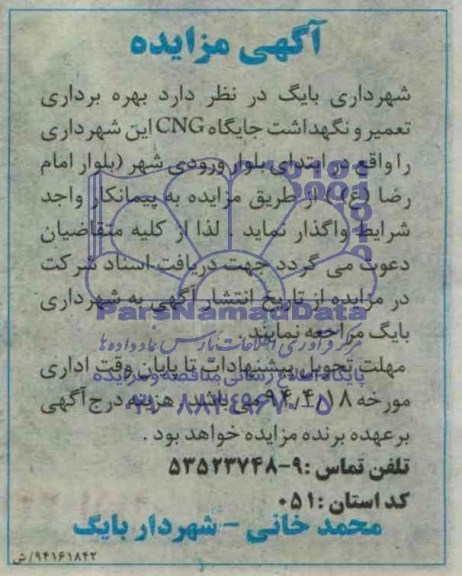 آگهی مزایده
شهرداری بایگ در نظر دارد بهره برداری
تعمیر و نگهداشت جایگاه CNG این شهرداری
را واقع در ابتدای بلوار ورودی شهر (بلوار امام
رضا (ع)) از طریق مزایده به پیمانکار واجد
شرایط واگذار نماید . لذا از کلیه متقاضیان
دعوت می گردد جهت دریافت اسناد شرکت
در مزایده از تاریخ انتشار آگهی به شهرداری
ParsNamadData
بایگ مراجعه نمایند .
مرکز فرآوری اطلاعات پارس نماد داده ها
مهلت تحویل پیشنهادات تا پایان وقت اداری
پایگاه اطلاع رسانی مناقصه و مزایده
مورخه ۹۴/۴/۱۸ می باشد . هزینه درج آگهی
۰۲۱-۸۸۳۴۹۶۷۰-۵
بر عهده برنده مزایده خواهد بود .
تلفن تماس :۹-۵۳۵۲۳۷۴۸
کد استان : ۰۵۱
محمد خانی - شهردار بایگ
۹۴۱۶۱۸۴۲/ش